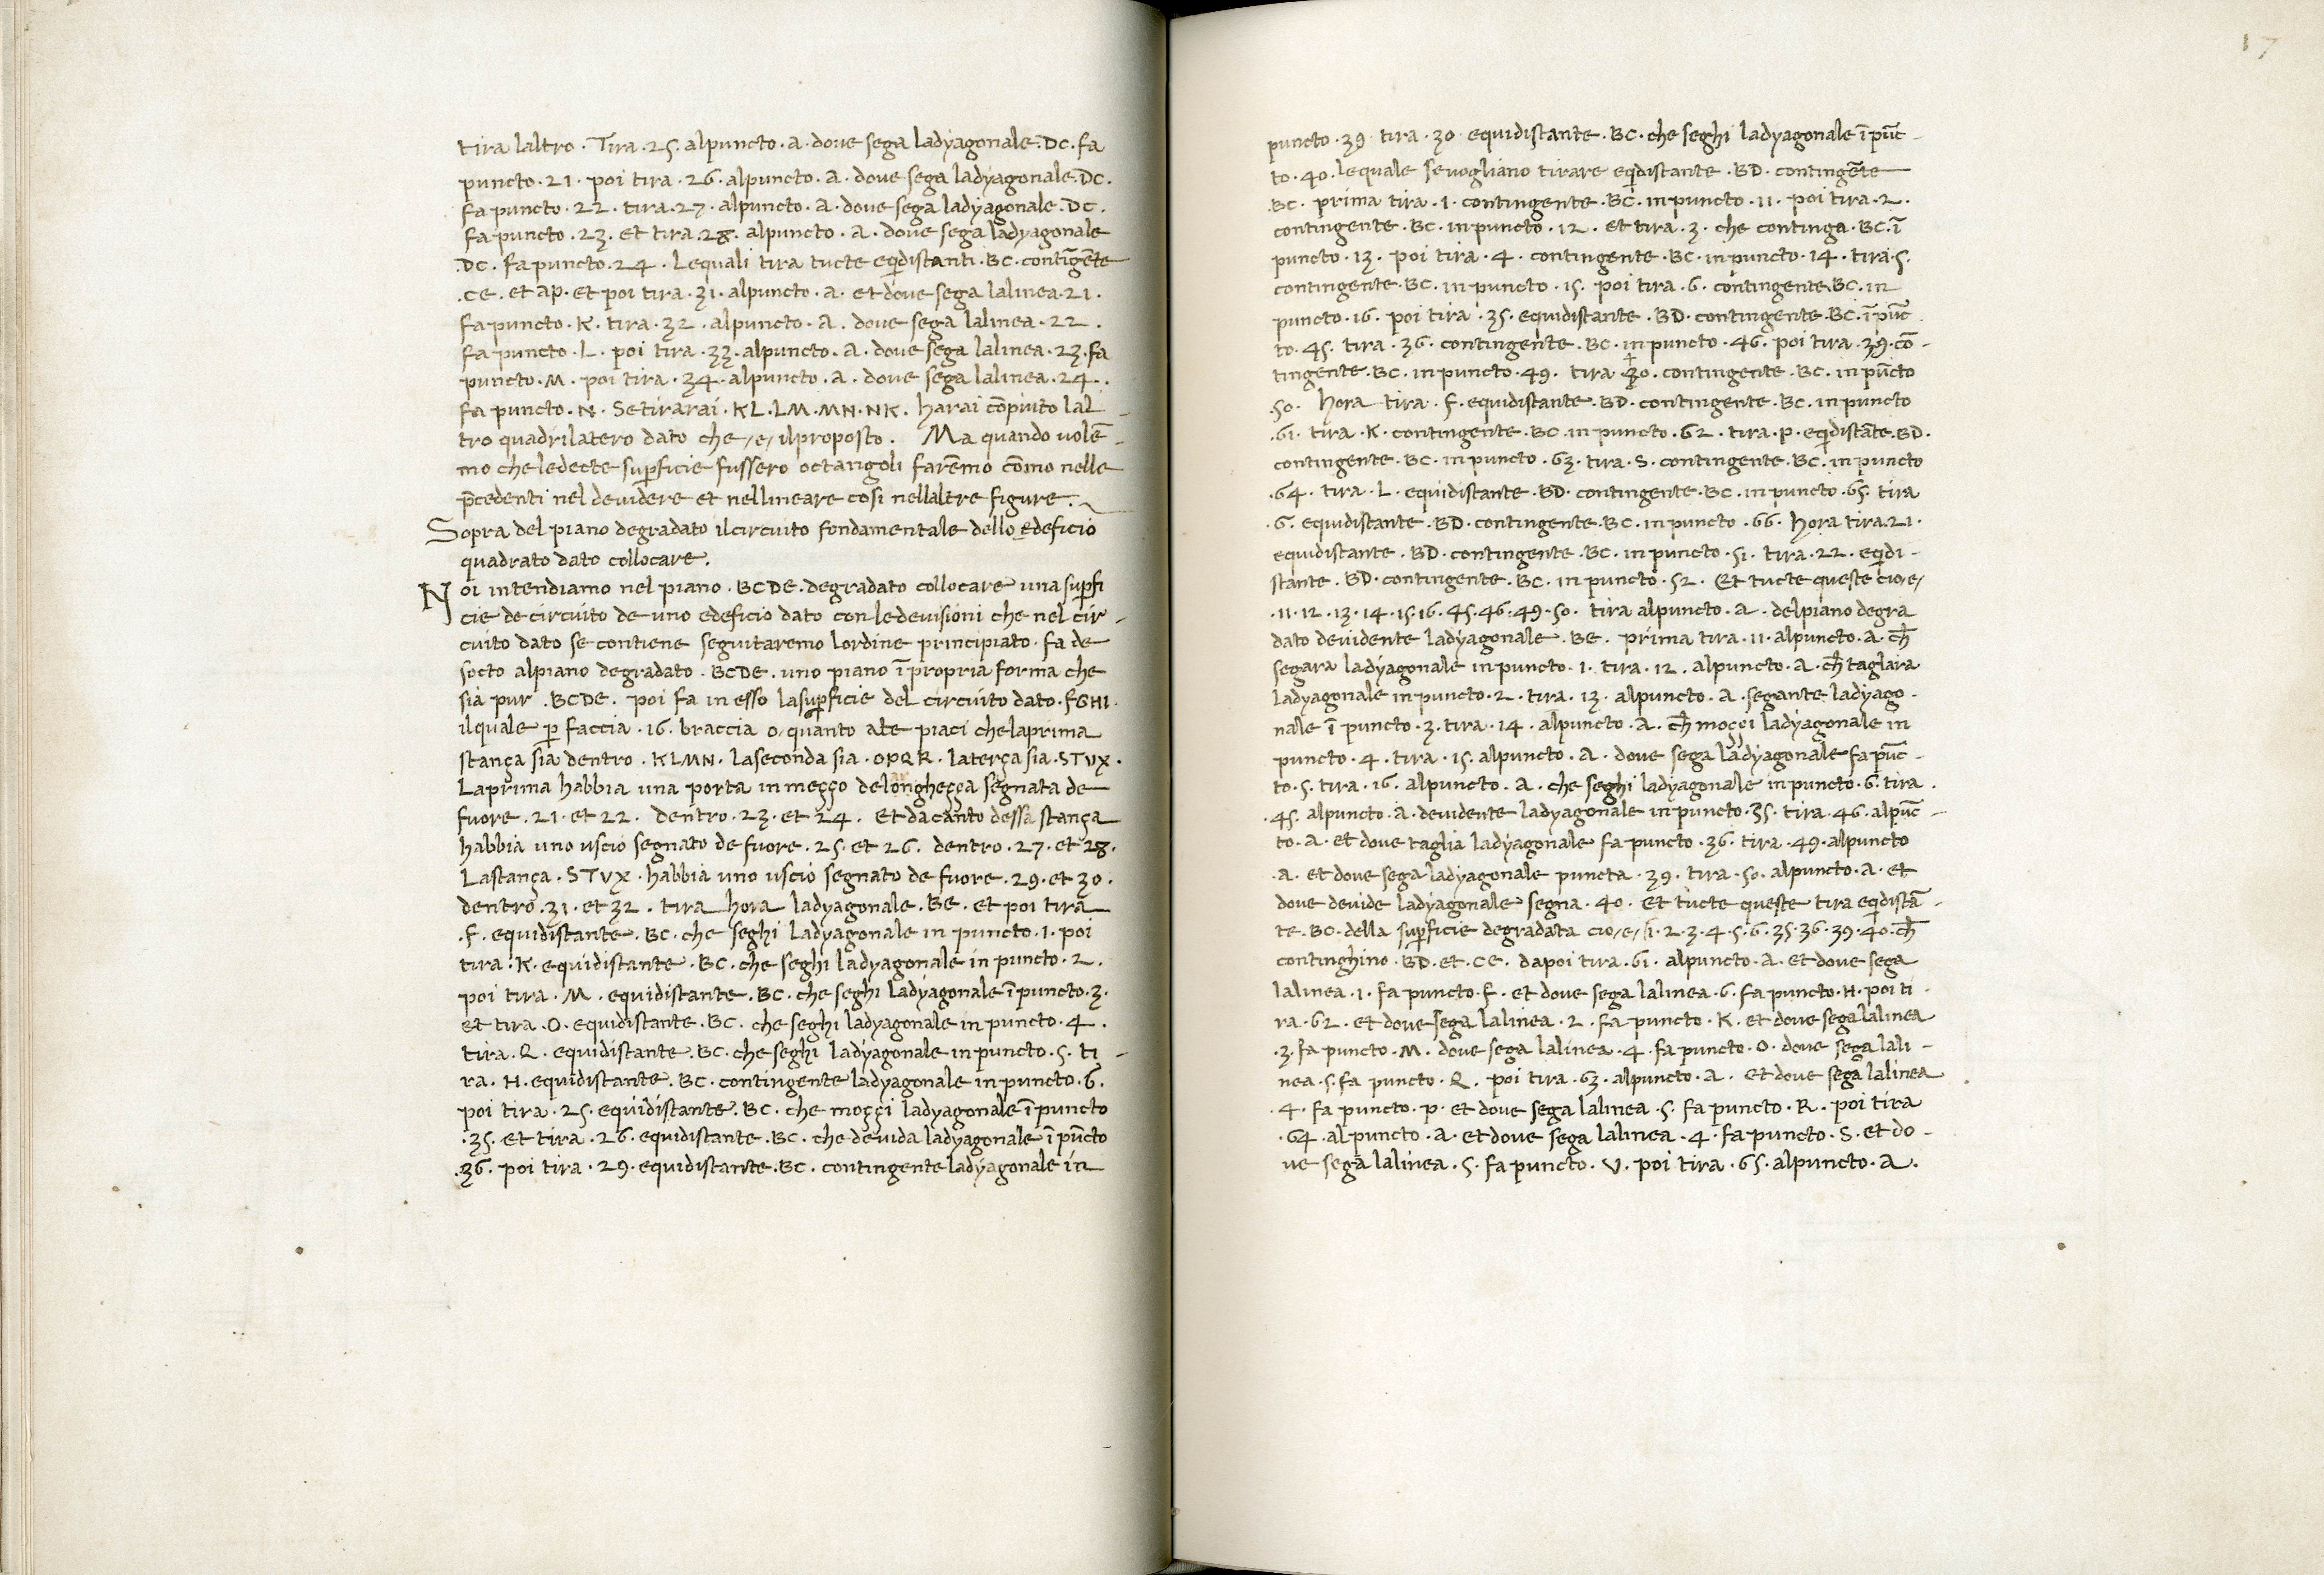 tira laltro · Tira · 25 · alpuncto · a · dove sega ladyagonale · DC · fa
puncto · 21 · poi tira · 26 · alpuncto · a · dove sega ladyagonale · DC ·
fa puncto · 22 · tira · 27 · alpuncto · a · dove sega ladyagonale · DC ·
fa puncto · 23 · et tira · 28 · alpuncto · a · dove sega ladyagonale
· DC · fa puncto · 24 · lequali tira tucte eqidistanti · BC · contīgēte
· CE · et ap · et poi tira · 31 · alpuncto · a · et dove sega lalinea · 21 ·
fa puncto · K · tira · 32 · alpuncto · a · dove sega lalinea · 22 ·
fa puncto · L · poi tira · 33 · alpuncto · a · dove sega lalinea · 23 · fa
puncto · M · poi tira · 34 · alpuncto · a · dove sega lalinea · 24 ·
fa puncto · N · Setirarai · KL · LM · MN · NK · harai cōpiuto lal-
tro quadrilatero dato che /e/ ilproposto · Ma quando volē-
mo che ledecte sup̄ficie fussero octangoli farēmo cōmo nelle
p̄cedenti nel devidere et nellineare cosi nellaltre figure ·
Sopra del piano degradato il circuito fondamentale dello edeficio
quadrato dato collocare ·
Noi intendiamo nel piano · BCDE · degradato collocare una sup̄fi
cie de circuito de uno edeficio dato con ledevisioni che nel cir-
cuito dato se contiene seguitaremo lordine principiato · fa de
socto alpiano degradato · BCDE · uno piano ī propria forma che
sia pur · BCDE · poi fa in esso lasup̄ficie del circuito dato · FGHI ·
ilquale p̄ faccia · 16 · braccia o/ quanto ate piaci che laprima
stança sia dentro · KLMN · laseconda sia · OPQR · laterça sia · STVX ·
Laprima habbia una porta in meçço delongheçça segnata de
fuore · 21 · et 22 · dentro · 23 · et 24 · et dacanto dessa stança
habbia uno uscio segnato de fuore · 25 · et 26 · dentro · 27 · et 28 ·
Lastança · STVX · habbia uno uscio segnato de fuore · 29 · et 30 ·
dentro · 31 · et 32 · tira hora ladyagonale · BE · et poi tira
· F · equidistante · BC · che seghi ladyagonale in puncto · 1 · poi
tira · K · equidistante · BC · che seghi ladyagonale in puncto · 2 ·
poi tira · M · equidistante · BC · che seghi ladyagonale ī puncto · 3 ·
et tira · O · equidistante · BC · che seghi ladyagonale in puncto · 4 ·
tira · Q · equidistante · BC · che seghi ladyagonale in puncto · 5 · ti-
ra · H · equidistante · BC · contingente ladyagonale in puncto · 6 ·
poi tira · 25 · equidistante · BC · che moççi ladyagonale ī puncto
· 35 · et tira · 26 · equidistante · BC · che devida ladyagonale ī pūcto
· 36 · poi tira · 29 · equidistante · BC · contingente ladyagonale in
17
puncto · 39 · tira · 30 · equidistante · BC · che seghi ladyagonale ī pūc-
to · 40 · lequale sevogliano tirare eqidistante · BD · contingēte
· BC · prima tira · 1 · contingente · BC · in puncto · 11 · poi tira · 2 ·
contingente · BC · in puncto · 12 · et tira · 3 · che continga · BC · ī
puncto · 13 · poi tira · 4 · contingente · BC · in puncto · 14 · tira · 5 ·
contingente · BC · in puncto · 15 · poi tira · 6 · contingente · BC · in
puncto · 16 · poi tira · 35 · equidistante · BD · contingente · BC · ī pūc-
to · 45 · tira · 36 · contingente · BC · in puncto · 46 · poi tira · 39 · cō-
tingente · BC · in puncto · 49 · tira · 40 · contingente · BC · in pūcto
· 50 · hora tira · F · equidistante · BD · contingente · BC · in puncto
· 61 · tira · K · contingente · BC · in puncto · 62 · tira · P · eqidistāte · BD ·
contingente · BC · in puncto · 63 · tira · S · contingente · BC · in puncto
· 64 · tira · L · equidistante · BD · contingente · BC · in puncto · 65 · tira
· G · equidistante · BD · contingente · BC · in puncto · 66 · hora tira · 21 ·
equidistante · BD · contingente · BC · in puncto · 51 · tira · 22 · eqidi-
stante · BD · contingente · BC · in puncto · 52 · Et tucte queste cio/e/
· 11 · 12 · 13 · 14 · 15 · 16 · 45 · 46 · 49 · 50 · tira alpuncto · a · delpiano degra
dato devidente ladyagonale · BE · prima tira · 11 · alpuncto · a · ch̄
segara ladyagonale in puncto · 1 · tira · 12 · alpuncto · a · ch̄ taglara
ladyagonale in puncto · 2 · tira · 13 · alpuncto · a · segante ladyago-
nale ī puncto · 3 · tira · 14 · alpuncto · a · ch̄ moççi ladyagonale in
puncto · 4 · tira · 15 · alpuncto · a · dove sega ladyagonale fa pūc-
to · 5 · tira · 16 · alpuncto · a · che seghi ladyagonale in puncto · 6 · tira ·
· 45 · alpuncto · a · devidente ladyagonale in puncto · 35 · tira · 46 · alpūc-
to · a · et dove taglia ladyagonale fa puncto · 36 · tira · 49 · alpuncto
· a · et dove sega ladyagonale puncta · 39 · tira · 50 · alpuncto · a · et
dove devide ladyagonale segna · 40 · et tucte queste tira eqidistā-
te · BC · della sup̄ficie degradata cio/e/ · 1 · 2 · 3 · 4 · 5 · 6 · 35 · 36 · 39 · 40 · ch̄
continghino · BD · et · CE · dapoi tira · 61 · alpuncto · a · et dove sega
lalinea · 1 · fa puncto · F · et dove sega lalinea · 6 · fa puncto · H · poi ti
ra · 62 · et dove sega lalinea · 2 · fa puncto · K · et dove sega lalinea
· 3 · fa puncto · M · dove sega lalinea · 4 · fa puncto · O · dove sega lali-
nea · 5 · fa puncto · Q · poi tira · 63 · alpuncto · a · et dove sega lalinea
· 4 · fa puncto · p · et dove sega lalinea · 5 · fa puncto · R · poi tira
· 64 · alpuncto · a · et dove sega lalinea · 4 · fa puncto · S · et do-
ve sega lalinea · 5 · fa puncto · V · poi tira · 65 · alpuncto · a ·